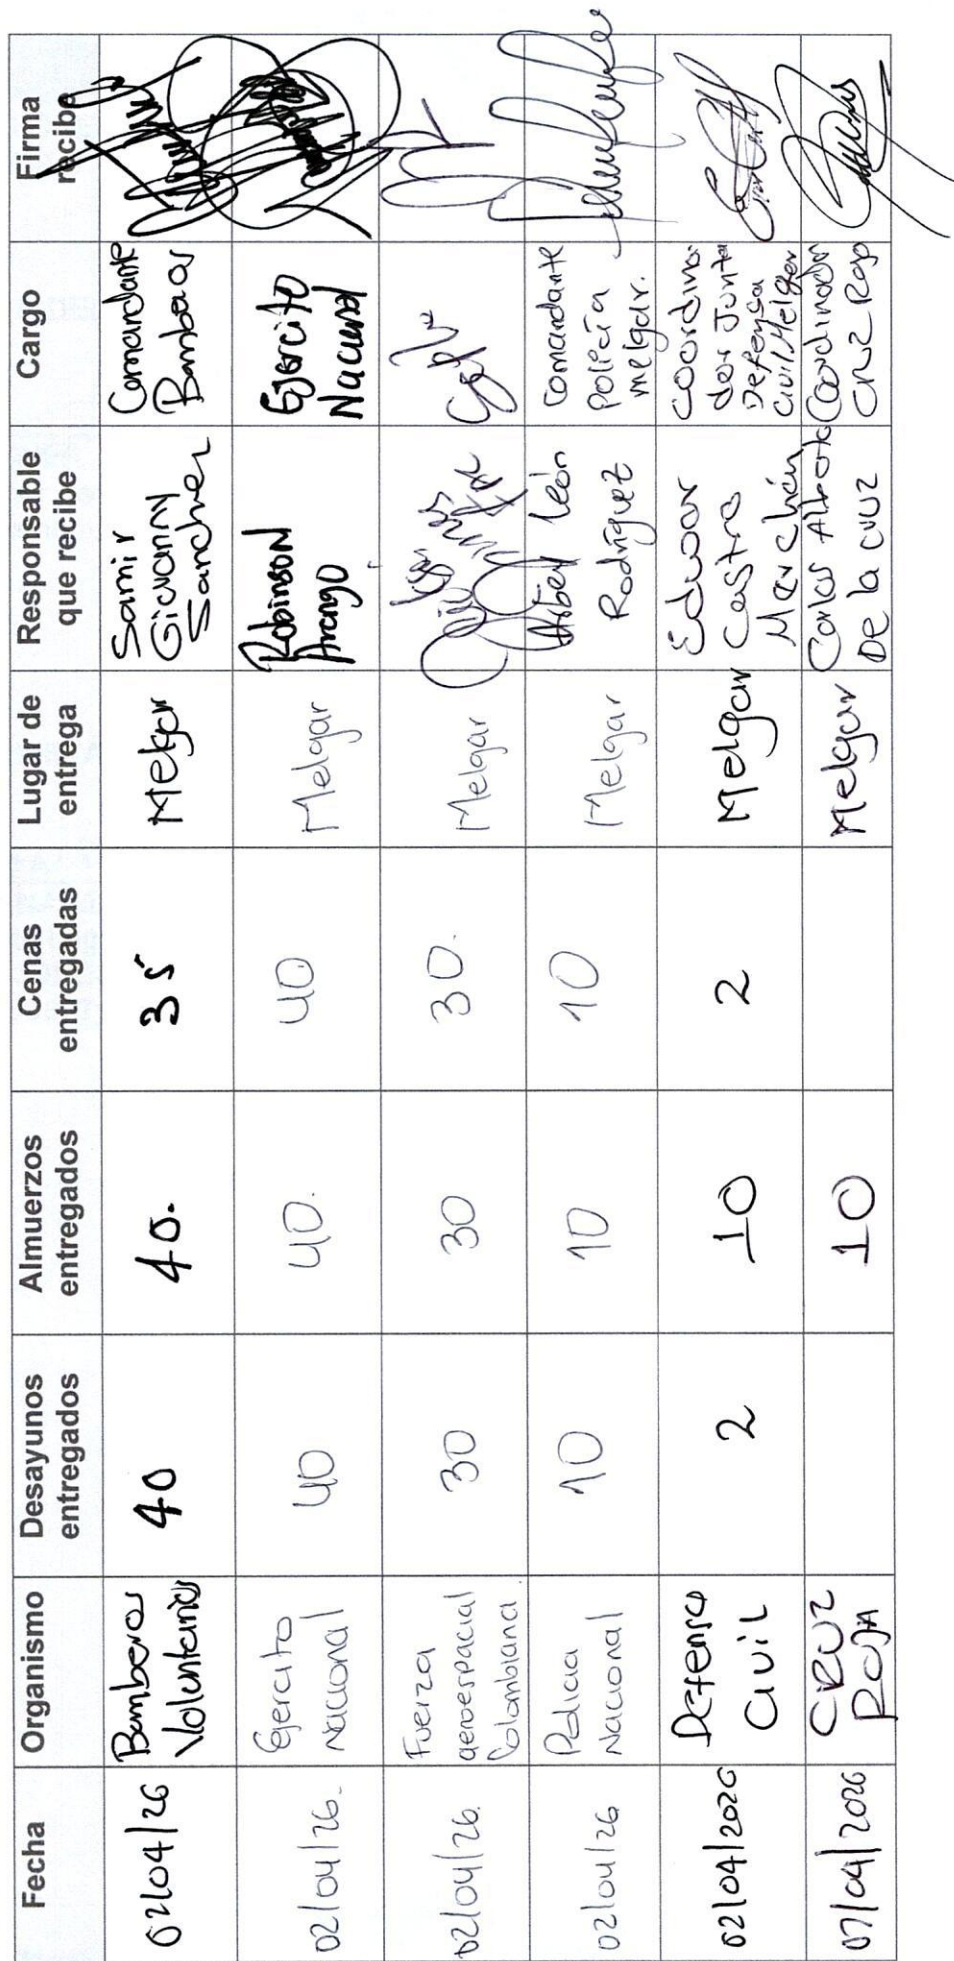 Fecha Organismo Desayunos entregados Almuerzos entregados Cenas entregadas Lugar de entrega Responsable que recibe Cargo Firma recibe
02/04/26 Bomberos Voluntarios 40 40. 35 Melgar Samir Giovanny Sanchez Comandante Bomberos
02/04/26. Ejercito Nacional 40 40. 40 Melgar Robinson Arango Ejercito Nacional
02/04/26. Fuerza aeroespacial Colombiana. 30 30 30. Melgar
02/04/26 Policia Nacional 10 10 10 Melgar Arbey león Rodríguez Comandante Policía melgar.
02/04/2026 Defensa Civil 2 10 2 Melgar Eduar Castro Coordinador Junta Defensa Civil Melgar
CRUZ ROJA 10 Melgar Carlos Alberto De la cruz Coordinador Cruz Roja